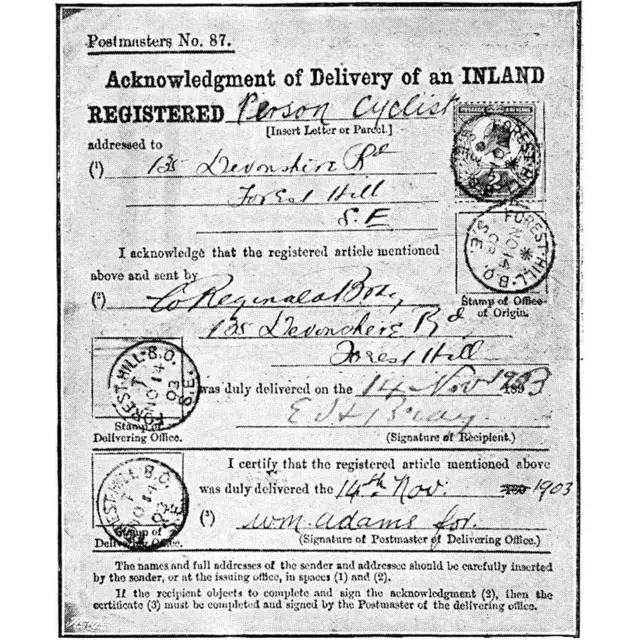 Postmasters No. 87.
Acknowledgment of Delivery of an INLAND
REGISTERED Person Cyclist
[Insert Letter or Parcel.]
addressed to
(1) 135 Devonshire Rd
Forest Hill
S.E
FOREST-HILL-B.O. S.E.
NO 14 03
I acknowledge that the registered article mentioned
above and sent by
(2) Co Reginald Bray
135 Devonshere Rd
Forest Hill
Stamp of Office
of Origin.
FOREST-HILL-B.O. S.E.
7 NO 14 03
was duly delivered on the 14 Nov 1903
E H Bray
(Signature of Recipient.)
Stamp of
Delivering Office.
I certify that the registered article mentioned above
was duly delivered the 14th Nov. 1903
(3) Wm. adams for.
(Signature of Postmaster of Delivering Office.)
FOREST-HILL-B.O.
Stamp of
Delivering Office.
The names and full addresses of the sender and addressee should be carefully inserted
by the sender, or at the issuing office, in spaces (1) and (2).
If the recipient objects to complete and sign the acknowledgment (2), then the
certificate (3) must be completed and signed by the Postmaster of the delivering office.